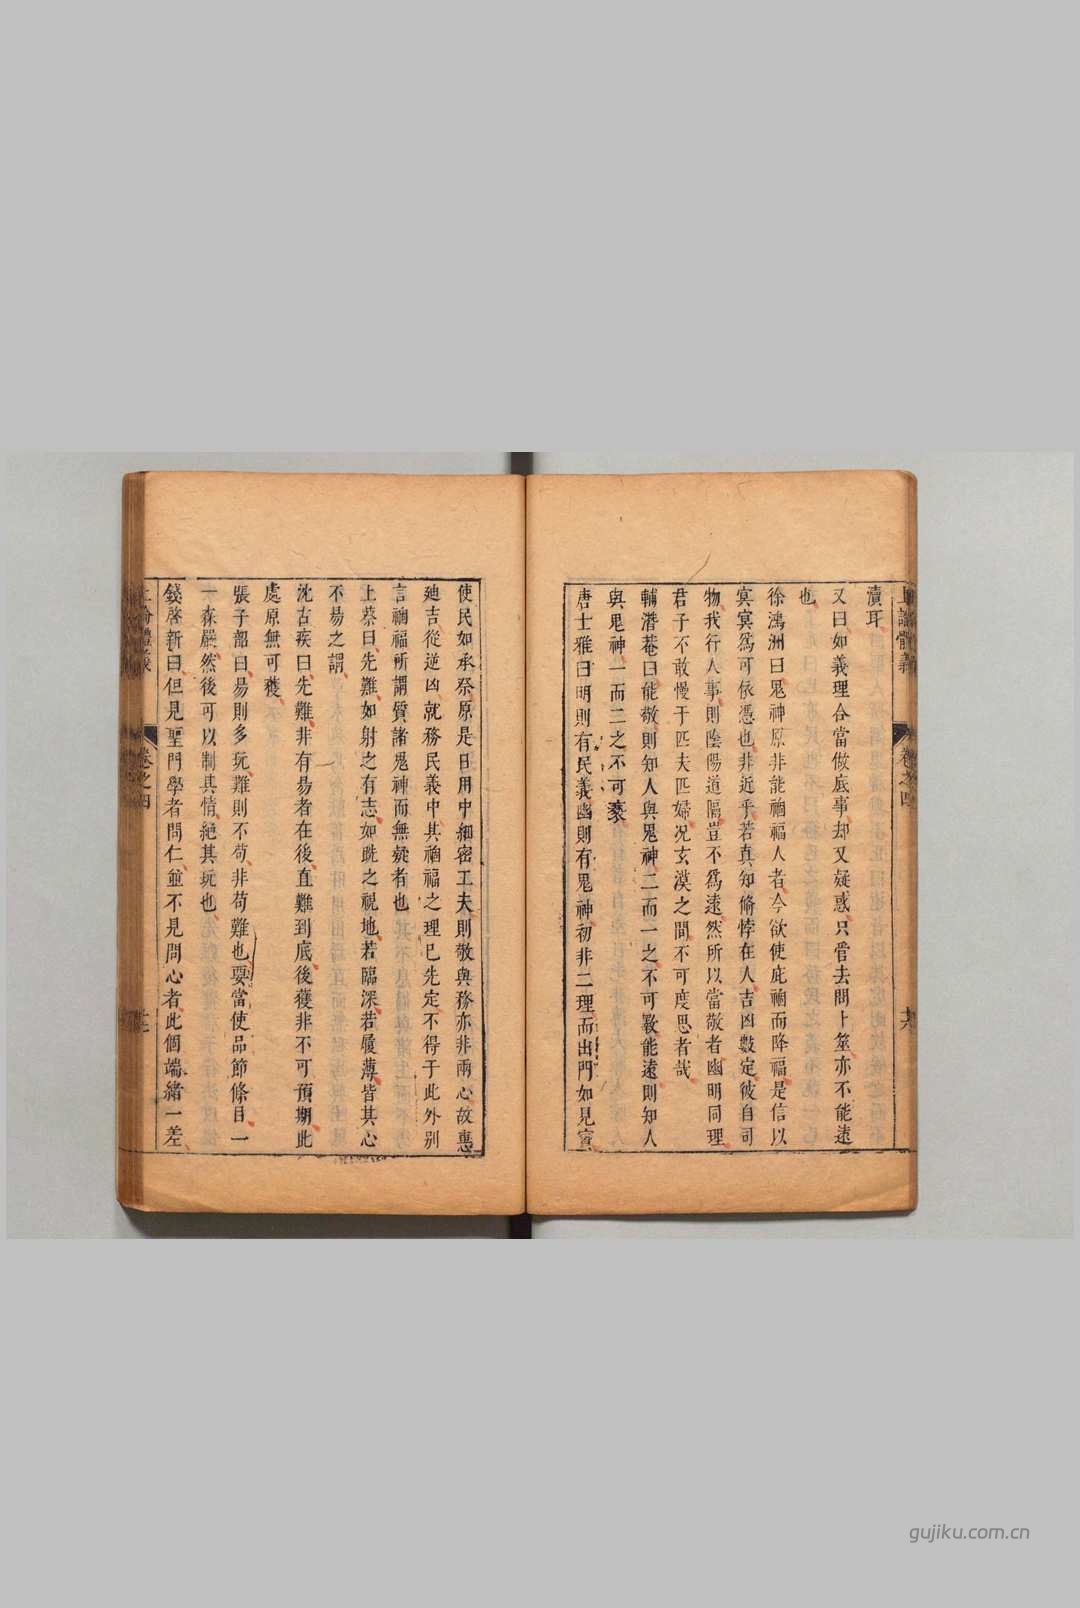 上論體義 卷之四 十六
瀆耳
又曰如義理合當做底事却又疑惑只管去問卜筮亦不能遠
也
徐鴻洲曰鬼神原非能禍福人者今欲使庇禍而降福是信以
冥冥爲可依憑也非近乎若真知脩悖在人吉凶數定彼自司
物我行人事則陰陽道隔豈不爲遠然所以當敬者幽明同理
君子不敢慢于匹夫匹婦况玄漠之間不可度思者哉
輔潛菴曰能敬則知人與鬼神二而一之不可斁能遠則知人
與鬼神一而二之不可䙝
唐士雅曰明則有民義幽則有鬼神初非二理而出門如見賓
使民如承祭原是日用中細密工夫則敬與務亦非兩心故惠
廸吉從逆凶就務民義中其禍福之理已先定不得于此外別
言禍福所謂質諸鬼神而無疑者也
上蔡曰先難如射之有志如跣之視地若臨深若履薄皆其心
不易之謂
沈古疾曰先難非有易者在後直難到底後獲非不可預期此
處原無可獲
張子韶曰易則多玩難則不苟非苟難也要當使品節條目一
一森嚴然後可以制其情絕其玩也
錢啓新曰但見聖門學者問仁並不見問心者此個端緒一差
卷之四
gujiku.com.cn